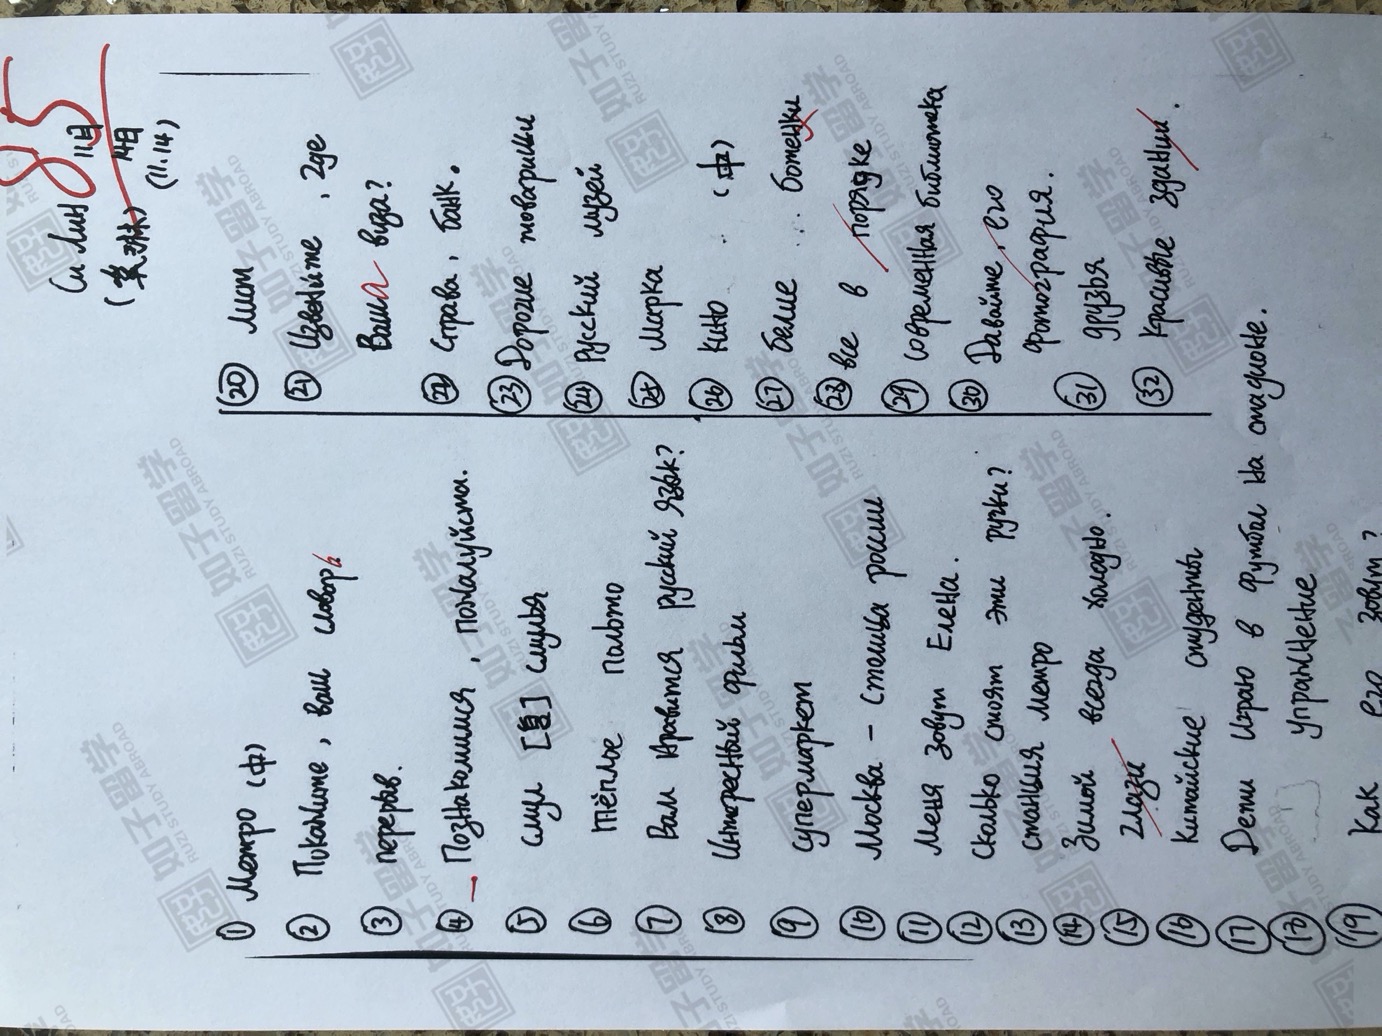 85
Си Лин 11月14日
(11.14)
① Метро (中)
② Покажите, ваш словарь
③ перерыв.
④ Познакомися, пожалуйста.
⑤ стул [复] стулья
⑥ тёплое пальто
⑦ Вам нравится русский язык?
⑧ Интересный фильм
⑨ супермаркет
⑩ Москва - столица росии
⑪ Меня зовут Елена.
⑫ сколько стоят эти ручки?
⑬ станция метро
⑭ Зимой всегда холодно.
⑮ глази
⑯ Китайские студенты
⑰ Дети играю в футбол на стадионе.
⑱ упражнение
⑲ Как его зовут?
⑳ лист
㉑ Извените, где
Ваша виза?
㉒ Страва, банк.
㉓ Дорогие товарищи
㉔ Русский музей
㉕ Марка
㉖ кино (中)
㉗ белие ботенки
㉘ все в порядке
㉙ современная библиотека
㉚ Давайте, его
фотография.
㉛ друзья
㉜ красивые здании.
学盟子如
RUZI STUDY ABROAD